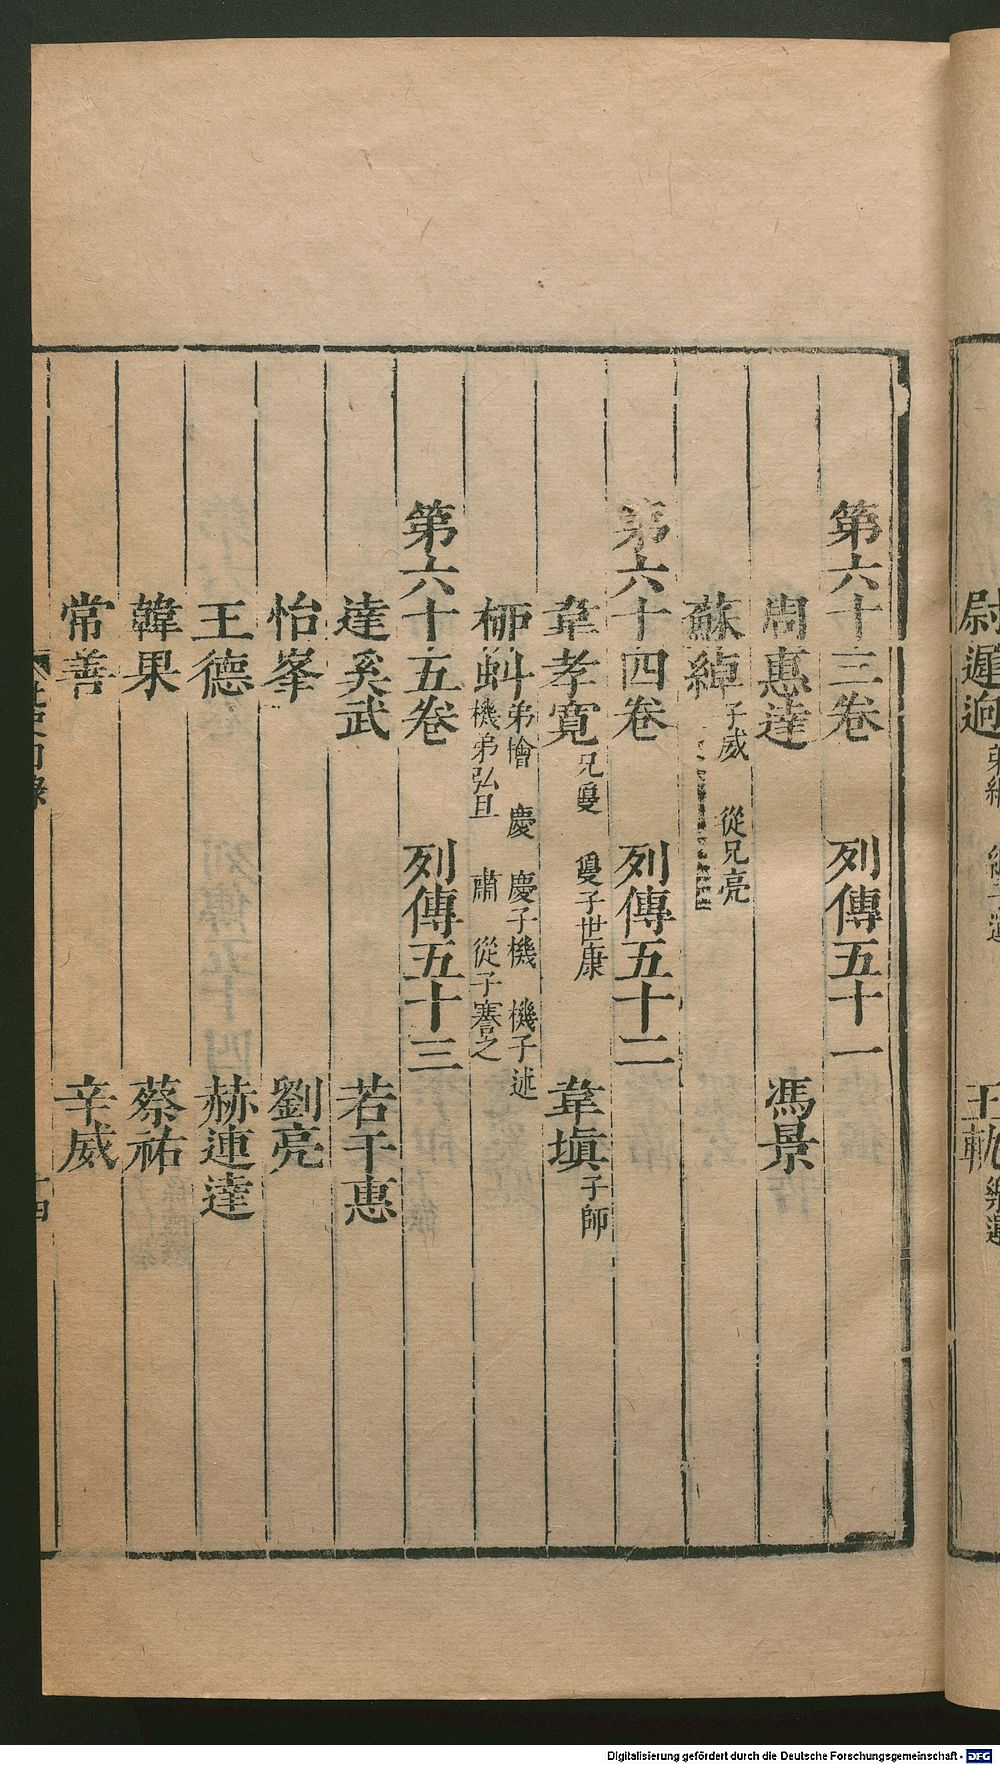 尉遲迥
王軌
樂運
第六十三卷　列傳五十一
周惠達　馮景
蘇綽 子威　從兄亮
第六十四卷　列傳五十二
韋孝寬 兄敻　敻子世康　韋瑱 子師
柳虯 弟檜　慶　慶子機　機子述
機弟弘旦　肅　從子謇之
第六十五卷　列傳五十三
達奚武　若干惠
怡峯　劉亮
王德　赫連達
韓果　蔡祐
常善　辛威
Digitalisierung gefördert durch die Deutsche Forschungsgemeinschaft - DFG